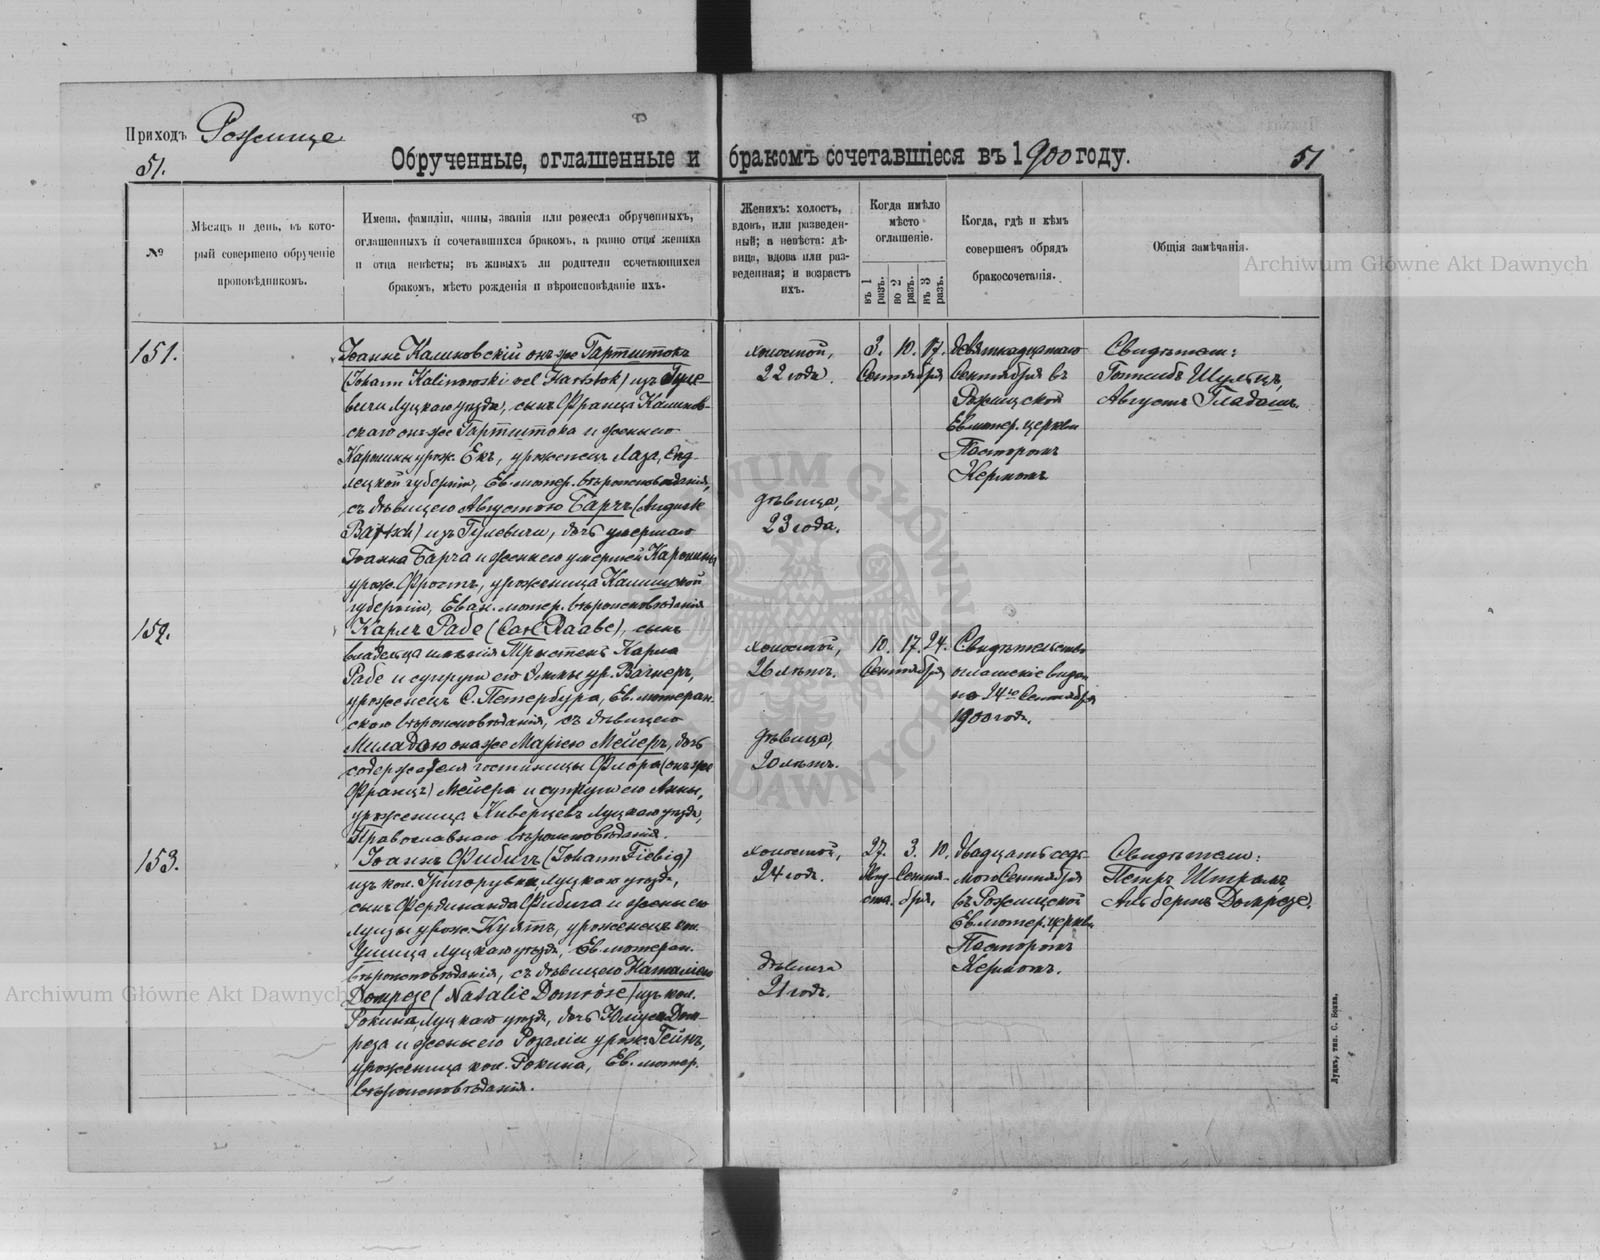 Приходъ Рожище
51.
Обрученные, оглашенные и бракомъ сочетавшіеся въ 1900 году.
51
№
Мѣсяцъ и день, въ кото-
рый совершено обрученіе
проповѣдникомъ.
Имена, фамиліи, чины, званія или ремесла обрученныхъ,
оглашенныхъ и сочетавшихся бракомъ, а равно отца жениха
и отца невѣсты; въ живыхъ ли родители сочетающихся
бракомъ, мѣсто рожденія и вѣроисповѣданіе ихъ.
Женихъ: холостъ,
вдовъ, или разведен-
ный; а невѣста: дѣ-
вица, вдова или раз-
веденная; и возрастъ
ихъ.
Когда имѣло
мѣсто
оглашеніе.
въ 1 разъ.
во 2 разъ.
въ 3 разъ.
Когда, гдѣ и кѣмъ
совершенъ обрядъ
бракосочетанія.
Общія замѣчанія.
Archiwum Główne Akt Dawnych
151.
Іоаннъ Калиновскій онъ же Гартштокъ
(Johann Kalinowski vel Hartstok) изъ Гуле-
вичи Луцкаго уѣзда, сынъ Франца Калинов-
скаго онъ же Гартштока и жены его
Каролины урож. Екъ, уроженецъ Лаза, Сѣд-
лецкой губерніи, Ев. лютер. вѣроисповѣданія,
съ дѣвицею Августою Барчъ (Auguste
Bartsch) изъ Гулевичи, дочь умершаго
Іоанна Барча и жены его умершей Каролины
урож. Фростъ, уроженица Калишской
губерніи, Еван. лютер. вѣроисповѣданія
холостой,
22 года.
дѣвица,
23 года.
3. 10. 17.
Сентября
Девятнадцатаго
Сентября въ
Рожищской
Ев. лютер. церкви
Пасторомъ
Кермомъ
Свидѣтели:
Готлибъ Шульцъ,
Августъ Гладашъ.
152.
Карлъ Рабе (Carl Raabe), сынъ
владѣльца имѣнія Тристень Карла
Рабе и супруги его Эммы ур. Вагнеръ,
уроженецъ С. Петербурга, Ев. лютеран-
скаго вѣроисповѣданія, съ дѣвицею
Миладою она же Маріею Мейеръ, дочь
содержателя гостиницы Флора (онъ же
Францъ) Мейера и супруги его Анны,
уроженица Киверцевъ Луцкаго уѣзда,
Православнаго вѣроисповѣданія.
холостой,
26 лѣтъ.
дѣвица,
20 лѣтъ.
10. 17. 24.
Сентября
Свидѣтельство
оглашеніе выдано
24го Сентября
1900 года.
153.
Іоаннъ Фибигъ (Johann Fiebig)
изъ кол. Григорувка, Луцкаго уѣзда,
сынъ Фердинанда Фибига и жены его
Луизы урож. Куятъ, уроженецъ
Луцкаго уѣзда, Ев. лютеран.
вѣроисповѣданія, съ дѣвицею Наталіею
Домрезе (Natalie Domröse) изъ кол.
Рокина, Луцкаго уѣзда, дочь Юлиуса Дом-
реза и жены его Розаліи урож. Гейнъ,
уроженица кол. Рокина, Ев. лютер.
вѣроисповѣданія.
холостой,
24 года.
дѣвица
21 года.
27. 3. 10.
Авгу- Сентя-
ста. бря.
Двадцать седь-
мого Сентября
въ Рожищской
Ев. лютер. церкви
Пасторомъ
Кермомъ.
Свидѣтели:
Петръ Штраль,
Альбертъ Домрезе.
Archiwum Główne Akt Dawnych
Луцкъ, тип. С. Бокъ.